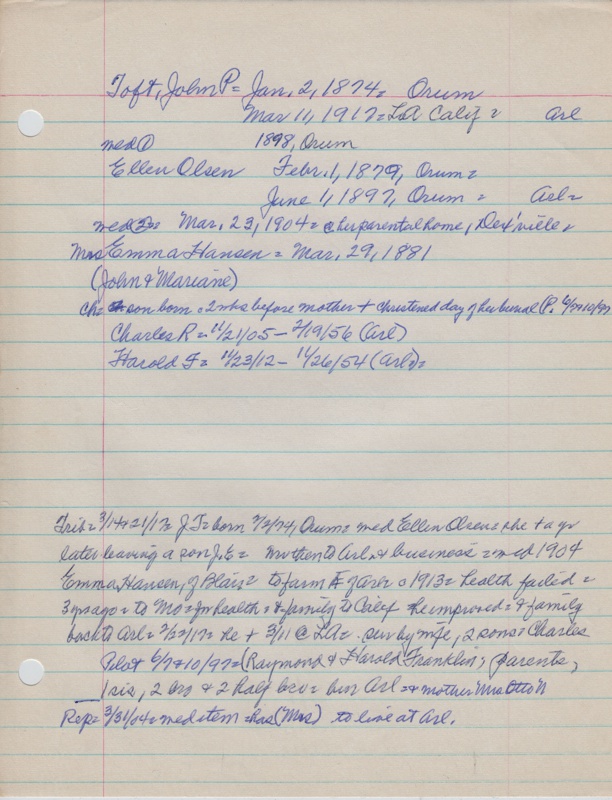 Toft, John P = Jan. 2, 1874 = Orum
Mar 11, 1917 = LA Calif = Arl
med ① 1898, Orum
Ellen Olsen Febr. 1, 1879, Orum =
June 1, 1897, Orum = Arl =
med ② = Mar. 23, 1904 = @ her parental home, Dex'ville,
Mrs Emma Hansen = Mar, 29, 1881
(John & Mariane)
Ch = son born 2 before mother + christened day of her burial (P. 6/7 & 10/97
Charles R = 11/21/05 – 2/19/56 (Arl)
Harold F = 11/23/12 – 11/26/54 (Arl) =
Trib = 3/14 & 21/17 = J T = born Orum = med Ellen Olsen = she + a yr
later leaving a son J.E = to Arl & business = med 1904
Emma Hansen, of Blair = to farm of 1913 = health failed =
3 yrs ago = to Mo = health = & family to Calif he improved = & family
back to Arl = he + 3/11 @ LA = surv by wife, 2 sons = Charles
Pilot 6/7 & 10/97 = (Raymond & Harold Franklin, parents,
1 sis, 2 bro & 2 half bro = bur Arl = & mother Mrs Otto N
Rep = 3/31/04 = med item = has (Mrs) to live at Arl.